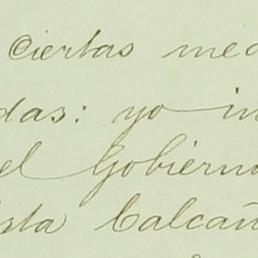 ciertas med
das: yo in
el Gobierno
ista Calcañ